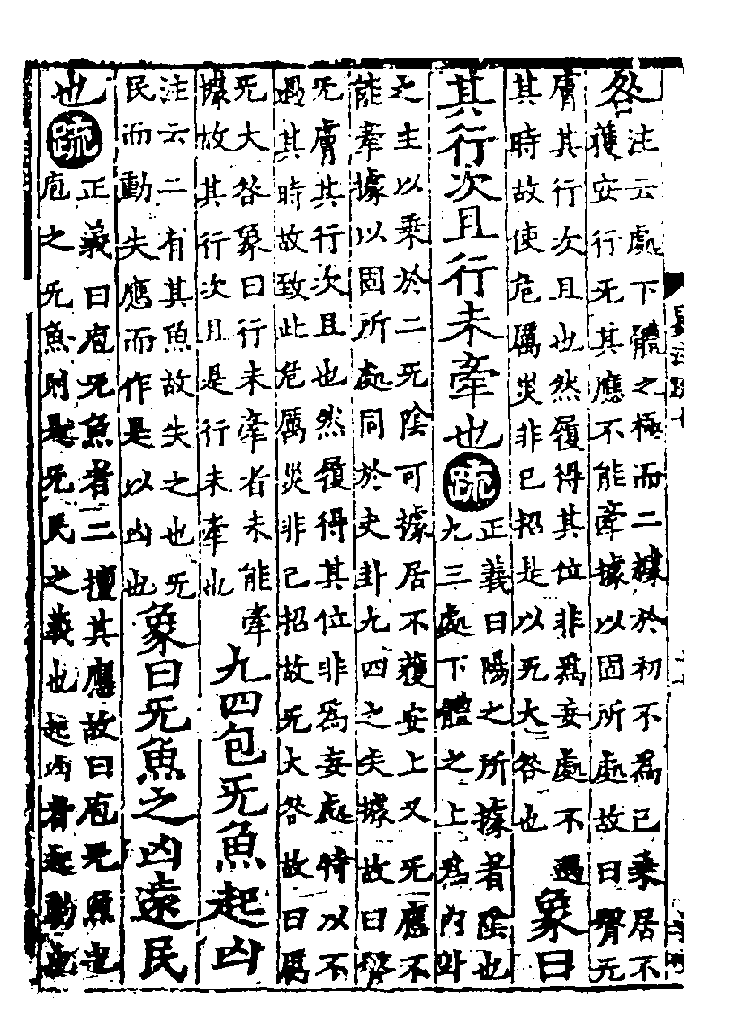 咎
注云處下體之極而二據於初不為己乘居不
獲安行无其應不能牽據以固所處故曰臀无
膚其行次且也然履得其位非為妄處不遇
其時故使危厲災非己招是以无大咎也
象曰
其行次且行未牽也疏
正義曰陽之所據者陰也
九三處下體之上為內卦
之主以乘於二无陰可據居不獲安上又无應不
能牽據以固所處同於夬卦九四之失據故曰臀
无膚其行次且也然履得其位非為妄處特以不
遇其時故致此危厲災非己招故无大咎故曰厲
无大咎象曰行未牽者未能牽
據故其行次且是行未牽也
九四包无魚起凶
注云二有其魚故失之也无
民而動失應而作是以凶也
象曰无魚之凶遠民
也疏
正義曰庖无魚者二擅其應故曰庖无魚也
庖之无魚則是无民之義也起凶者起動也